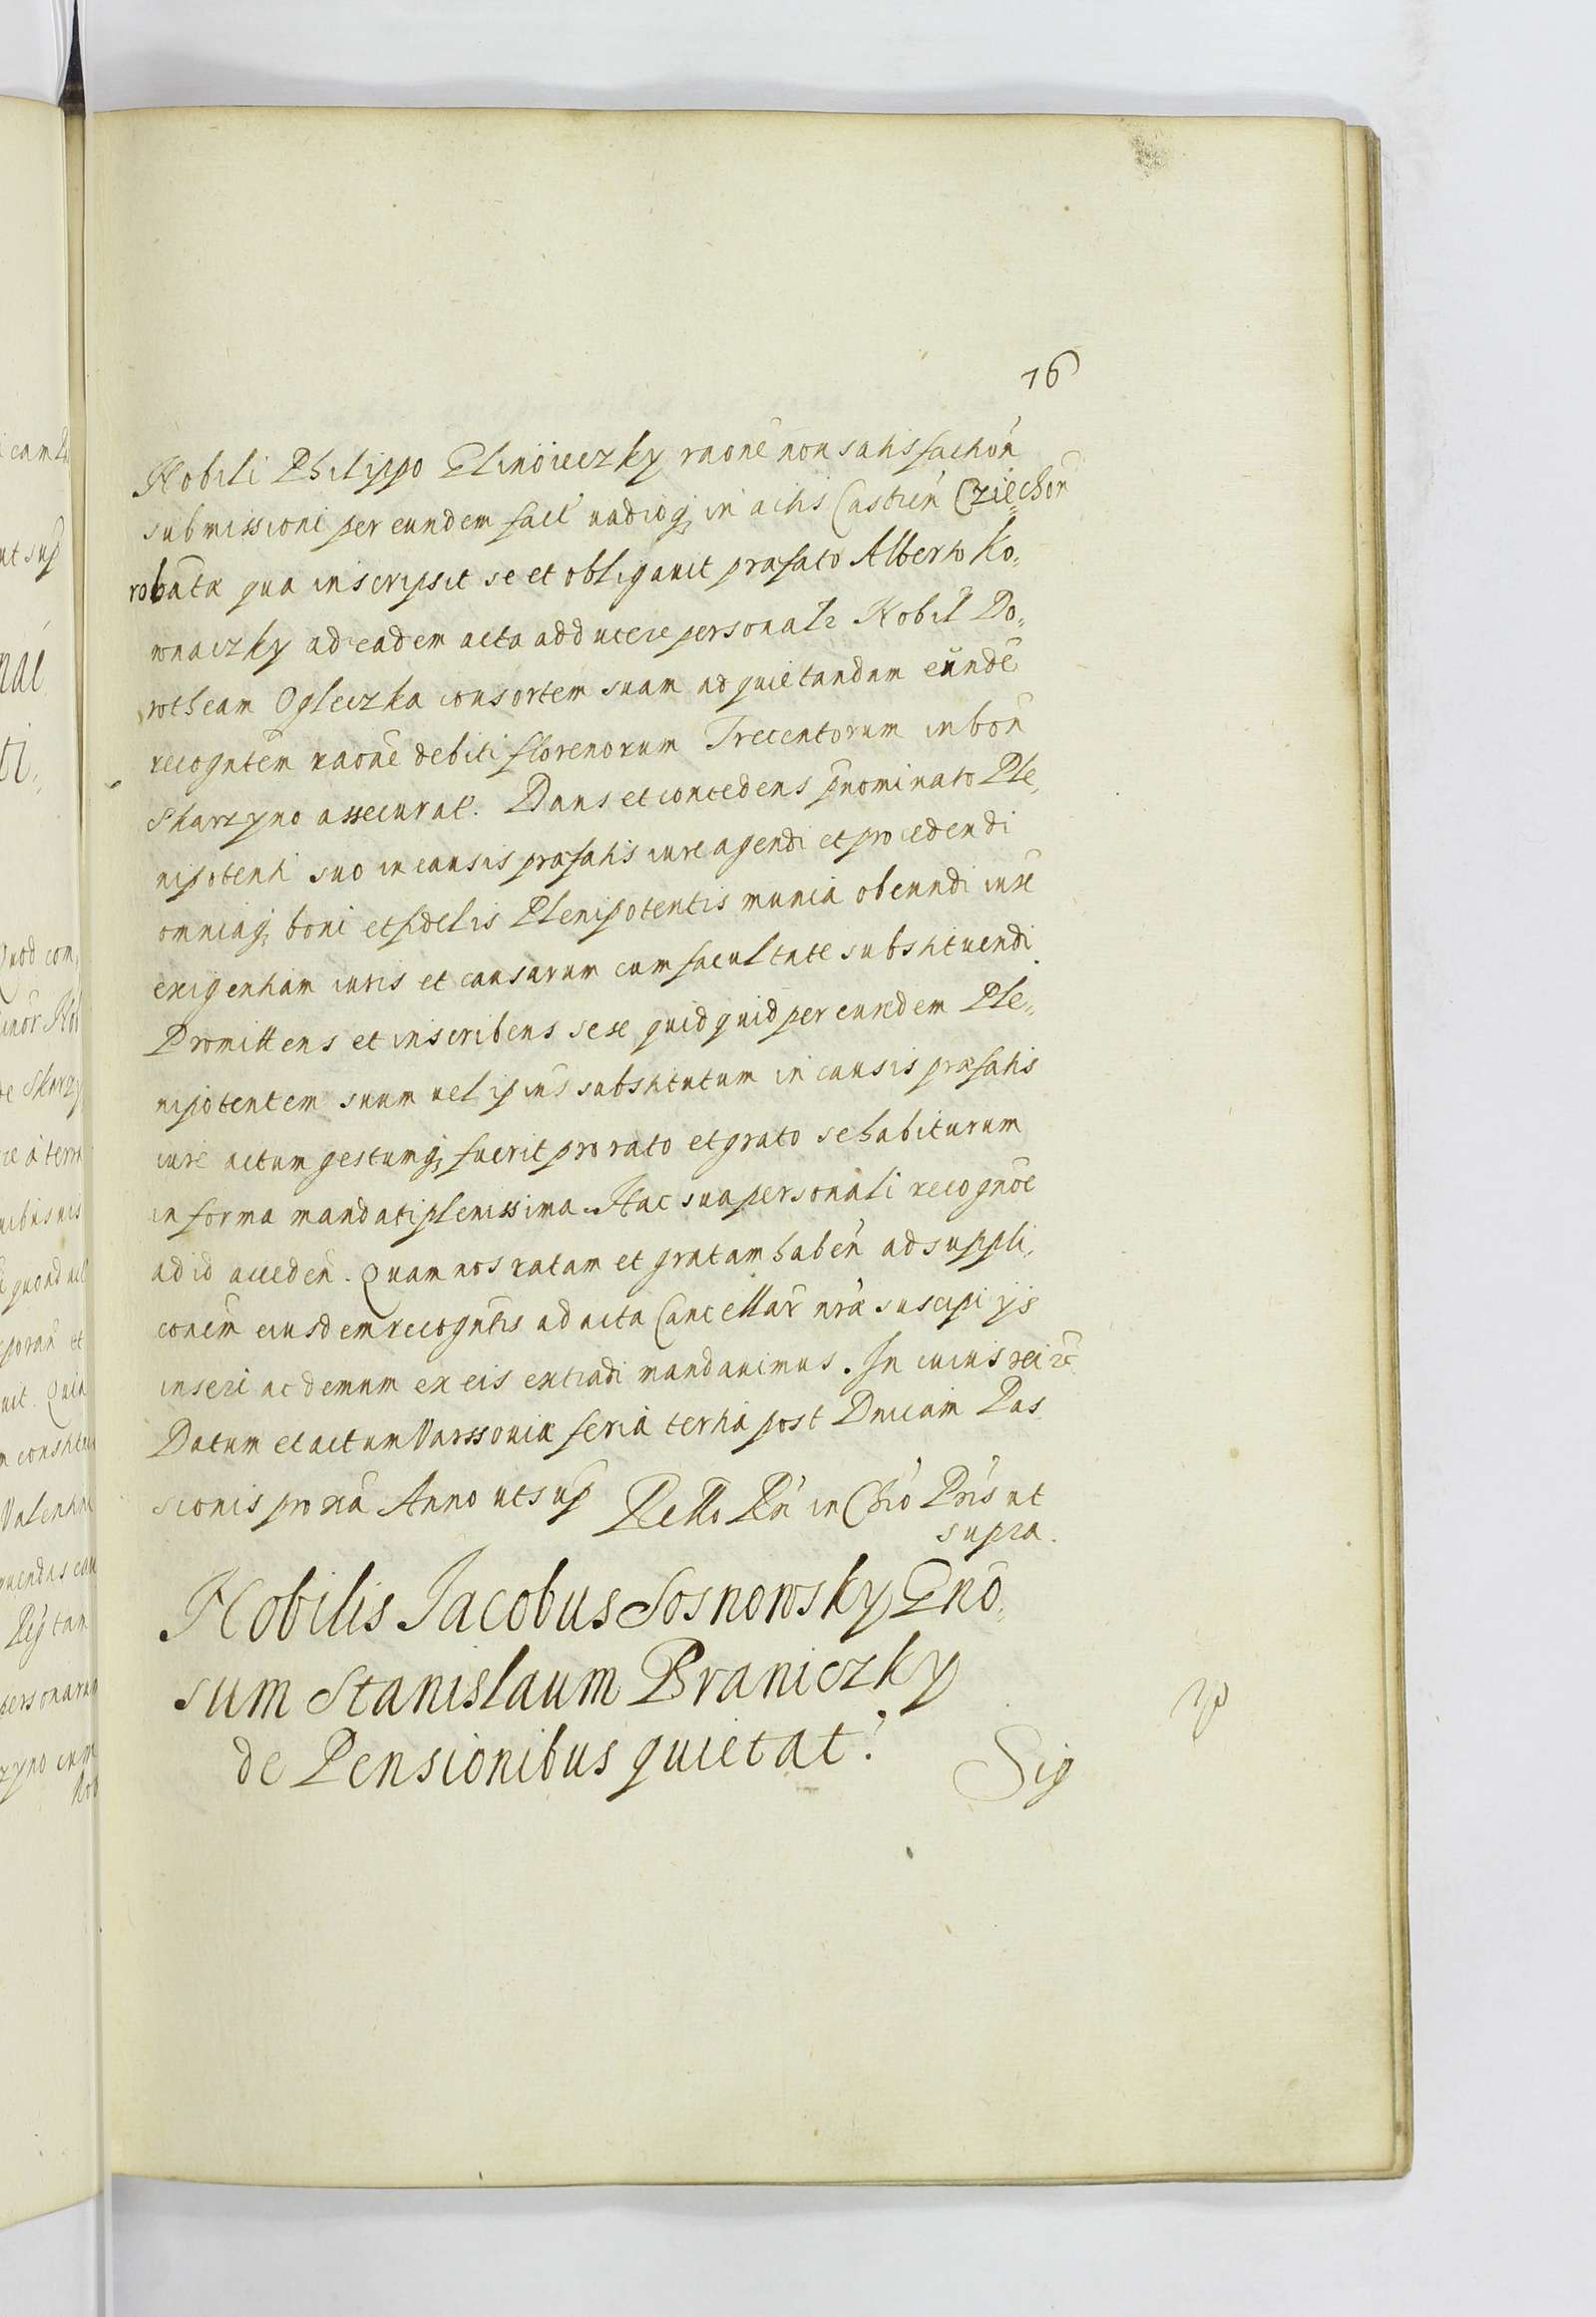 16
Nobili Philippo Glinoieczky raone non satisfaction
submissioni per eundem fact vadioq in actis Castren Cziechon
robatae qua inscripsit se et obligauit praefato Alberto Ko„
wnaczky ad eadem acta adducere personalr Nobil Do„
rotheam Ogleczka consortem suam ad quietandum eunde
recogntem raone debiti florenorum Trecentorum in bon
Skarzyno assecurat. Dans et concedens pnominato Ple„
nipotenti suo in causis praefatis iure agendi et procedendi
omniaq boni et fidelis Plenipotentis munia obeundi iuxe
exigentiam iuris et causarum cum facultate substituendi.
Promittens et inscribens sese quidquid per eundem Ple„
nipotentem suum uel ipius substitutum in causis praefatis
iure actum gestumq fuerit pro rato et grato se habiturum
in forma mandati plenissima. Hac sua personali recognoe
ad id acceden. Quam nos ratam et gratam haben ad suppli„
conem eiusdem recogntis ad acta Cancellar nra suscipi ijs
inseri ac demum ex eis extradi mandauimus. In cuius rei rc
Datum et actum Varssouiae feria tertia post Dnicam Pas
sionis proxa Anno ut sup Petto Pn in Chro Pris ut
supra.
Nobilis Jacobus Sosnowsky Gno„
sum Stanislaum Braniczky
de Pensionibus quietat.
Sig